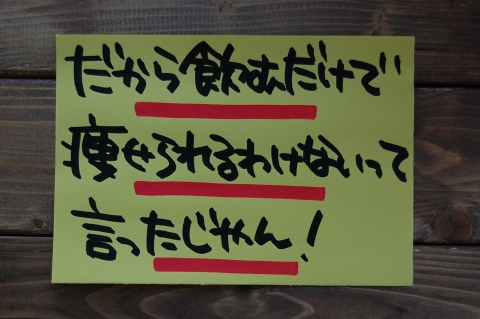 だから飲むだけで
痩せられるわけないって
言ったじゃん!